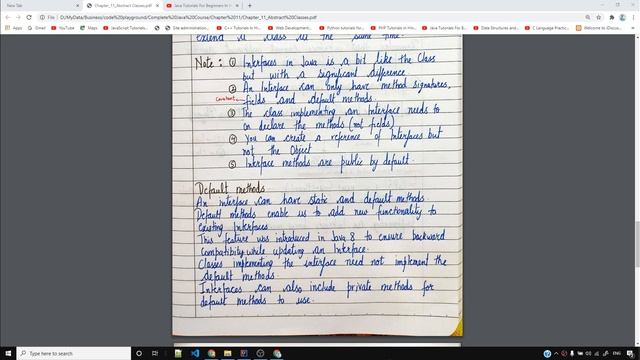 New Tab
Chapter_11_AbstractClasses.pdf
Java Tutorials For Beginners In H
D:/MyData/Business/code%20playground/Complete%20Java%20Course/Chapter%2011/Chapter_11_AbstractClasses.pdf
Apps
JavaScript
extend a class at the same time.
Note: ① Interfaces in Java is a bit like the Class
but with a significant difference
② An Interface can only have method signatures,
Constant
fields and default methods.
③ The class implementing an Interface needs to
declare the methods (not fields)
④ You can create a reference of Interfaces but
not the Object
⑤ Interface methods are public by default.
Default methods
An interface can have static and default methods
Default methods enable us to add new functionality to
existing Interfaces
This feature was introduced in Java 8 to ensure backward
compatibility while updating an Interface.
Classes implementing the interface need not implement the
default methods.
Interfaces can also include private methods for
default methods to use.
Type here to search
ENG